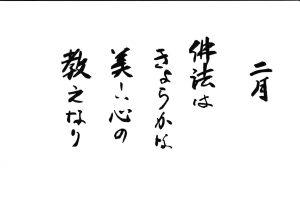 二月
佛法は
きよらかな
美しい心の
教えなり